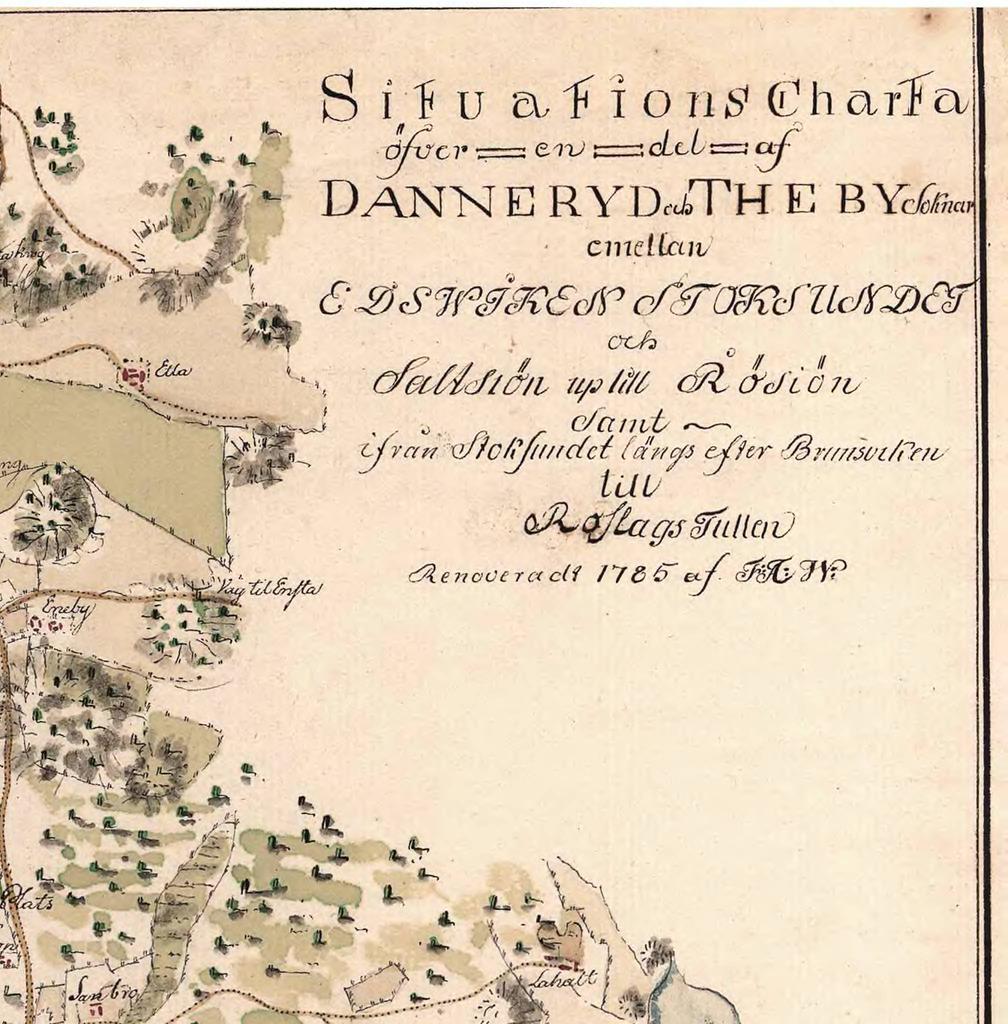 SituationsCharta
öfver en del af
DANNERYD och THEBY Soknar
emellan
EDSWIKEN STOKSUNDET
och
Saltsiön up till Rösiön
Samt
ifrån Stoksundet längs efter Brunsviken
till
RoslagsTullen
Renoveradt 1785 af. F:A: W:
Etta
Väg til Ensta
Eneby
Plats
Sanbro
Lahält